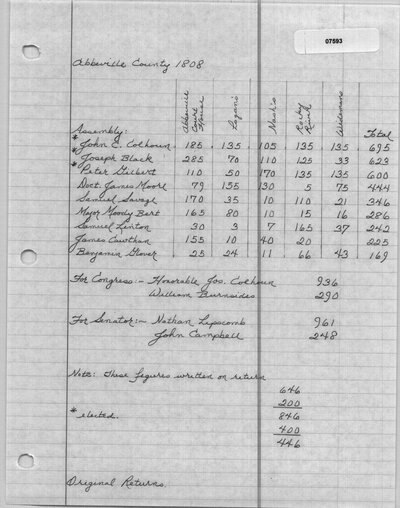 07593
Abbeville County 1808
Abbeville Court House Logan's Nash's Rocky River Wideman's
Assembly: Total
* John E. Colhoun 185 135 105 135 135 695
* Joseph Black 285 70 110 125 33 623
* Peter Gilbert 110 50 170 135 135 600
Doct. James Moore 79 155 130 5 75 444
Samuel Savage 170 35 10 110 21 346
Major Moody Burt 165 80 10 15 16 286
Samuel Linton 30 3 7 165 37 242
James Cawthan 155 10 40 20 225
Benjamin Glover 25 24 11 66 43 169
For Congress:- Honorable Jos. Colhoun 936
William Burnsides 290
For Senator:- Nathan Lipscomb 961
John Campbell 248
Note: These figures written on return
646
200
* elected. 846
400
446
Original Returns